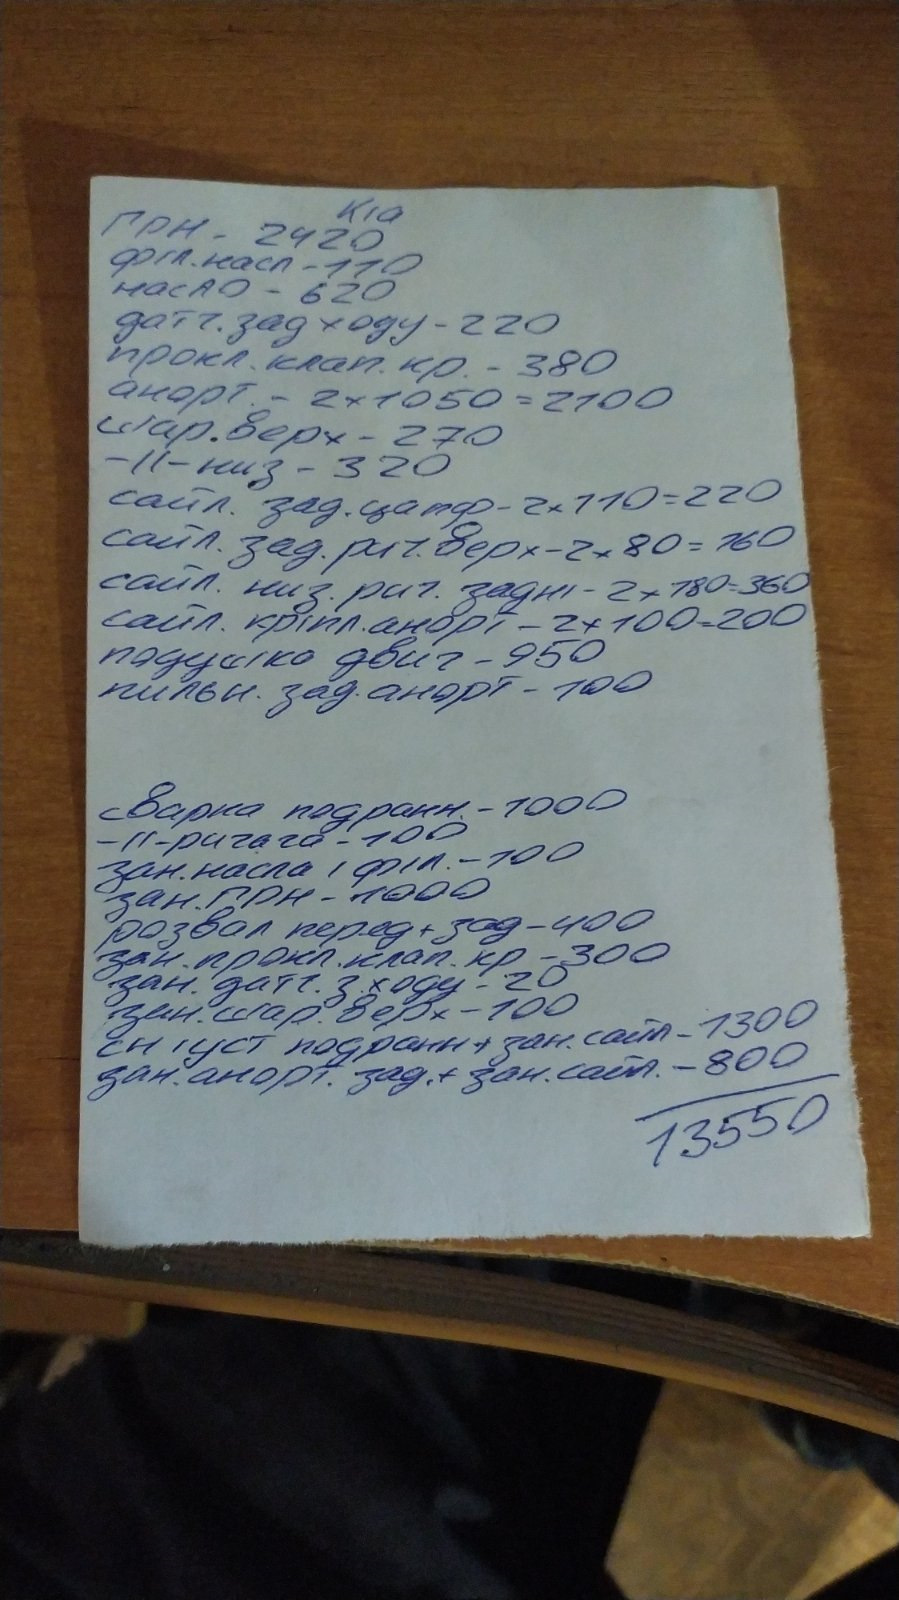 Kia
ГРН - 2420
філ.насл - 110
насло - 620
датч.зад ходу - 220
прокл.клап.кр. - 380
анорт. - 2×1050 = 2100
шар.верх - 270
-||- низ - 320
сайл. зад.цапф - 2×110 = 220
сайл. зад. рич.верх - 2×80 = 160
сайл. низ. рич. задні - 2×180 = 360
сайл. кріпл.анорт - 2×100 = 200
подушка двиг - 950
пильн. зад.анорт - 100
сварка подранн. - 1000
-||- ричага - 100
зан.насла і філ. - 100
зан.ГРН - 1000
розвал перед + зад - 400
зан.прокл.клап.кр - 300
зан. датч.з.ходу - 20
зан.шар.верх - 100
сн і уст подранн + зан.сайл - 1300
зан.анорт. зад. + зан.сайл. - 800
13550